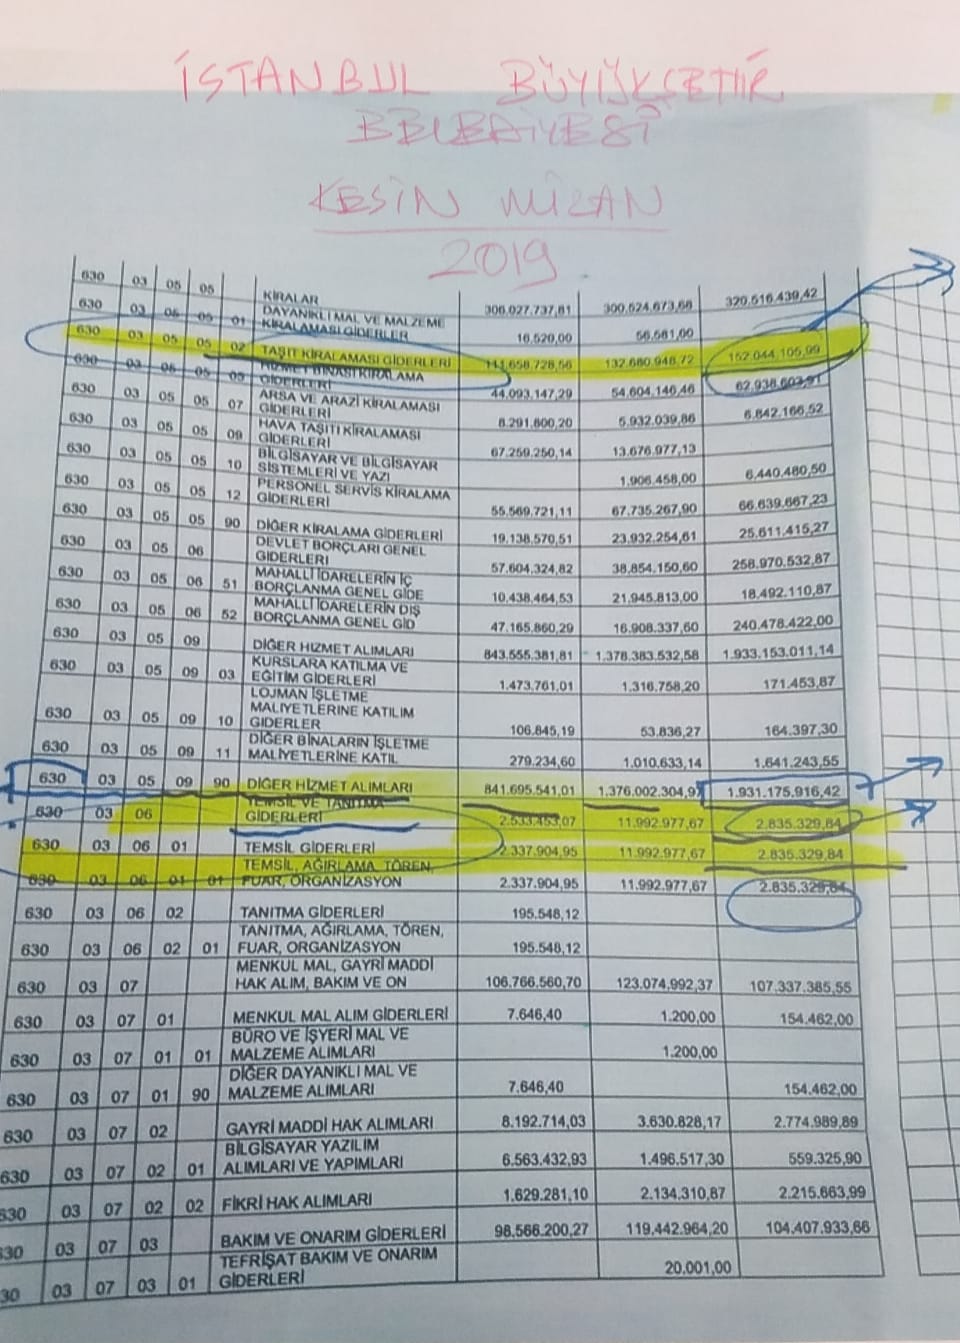 İSTANBUL BÜYÜKŞEHİR
BELEDİYESİ
KESİN MİZAN
2019
630 03 05 05 KİRALAR 306.027.737,81 300.524.673,66 320.516.439,42
630 03 05 05 01 DAYANIKLI MAL VE MALZEME
KİRALAMASI GİDERLER 16.520,00 56.581,00
630 03 05 05 02 TAŞIT KİRALAMASI GİDERLERİ 111.658.728,56 132.680.948,72 152.044.105,99
630 03 05 05 05 HİZMET BİNASI KİRALAMA
GİDERLERİ 44.093.147,29 54.604.146,46 62.938.603,91
630 03 05 05 07 ARSA VE ARAZİ KİRALAMASI
GİDERLERİ 8.291.800,20 5.932.039,86 6.842.166,52
630 03 05 05 09 HAVA TAŞITI KİRALAMASI
GİDERLERİ 67.259.250,14 13.676.977,13
630 03 05 05 10 BİLGİSAYAR VE BİLGİSAYAR
SİSTEMLERİ VE YAZI 1.906.458,00 6.440.480,50
630 03 05 05 12 PERSONEL SERVİS KİRALAMA
GİDERLERİ 55.569.721,11 67.735.267,90 66.639.667,23
630 03 05 05 90 DİĞER KİRALAMA GİDERLERİ 19.138.570,51 23.932.254,61 25.611.415,27
630 03 05 06 DEVLET BORÇLARI GENEL
GİDERLERİ 57.604.324,82 38.854.150,60 258.970.532,87
630 03 05 06 51 MAHALLİ İDARELERİN İÇ
BORÇLANMA GENEL GİDE 10.438.464,53 21.945.813,00 18.492.110,87
630 03 05 06 52 MAHALLİ İDARELERİN DIŞ
BORÇLANMA GENEL GİD 47.165.860,29 16.908.337,60 240.478.422,00
630 03 05 09 DİĞER HİZMET ALIMLARI 843.555.381,81 1.378.383.532,58 1.933.153.011,14
630 03 05 09 03 KURSLARA KATILMA VE
EĞİTİM GİDERLERİ 1.473.761,01 1.316.758,20 171.453,87
630 03 05 09 10 LOJMAN İŞLETME
MALİYETLERİNE KATILIM
GİDERLER 106.845,19 53.836,27 164.397,30
630 03 05 09 11 DİĞER BİNALARIN İŞLETME
MALİYETLERİNE KATIL 279.234,60 1.010.633,14 1.641.243,55
630 03 05 09 90 DİĞER HİZMET ALIMLARI 841.695.541,01 1.376.002.304,97 1.931.175.916,42
630 03 06 TEMSİL VE TANITMA
GİDERLERİ 2.533.453,07 11.992.977,67 2.835.329,84
630 03 06 01 TEMSİL GİDERLERİ 2.337.904,95 11.992.977,67 2.835.329,84
630 03 06 01 01 TEMSİL, AĞIRLAMA, TÖREN,
FUAR, ORGANİZASYON 2.337.904,95 11.992.977,67 2.835.329,84
630 03 06 02 TANITMA GİDERLERİ 195.548,12
630 03 06 02 01 TANITMA, AĞIRLAMA, TÖREN,
FUAR, ORGANİZASYON 195.548,12
630 03 07 MENKUL MAL, GAYRİ MADDİ
HAK ALIM, BAKIM VE ON 106.766.560,70 123.074.992,37 107.337.385,55
630 03 07 01 MENKUL MAL ALIM GİDERLERİ 7.646,40 1.200,00 154.462,00
630 03 07 01 01 BÜRO VE İŞYERİ MAL VE
MALZEME ALIMLARI 1.200,00
630 03 07 01 90 DİĞER DAYANIKLI MAL VE
MALZEME ALIMLARI 7.646,40 154.462,00
630 03 07 02 GAYRİ MADDİ HAK ALIMLARI 8.192.714,03 3.630.828,17 2.774.989,89
630 03 07 02 01 BİLGİSAYAR YAZILIM
ALIMLARI VE YAPIMLARI 6.563.432,93 1.496.517,30 559.325,90
630 03 07 02 02 FİKRİ HAK ALIMLARI 1.629.281,10 2.134.310,87 2.215.663,99
630 03 07 03 BAKIM VE ONARIM GİDERLERİ 98.566.200,27 119.442.964,20 104.407.933,66
30 03 07 03 01 TEFRİŞAT BAKIM VE ONARIM
GİDERLERİ 20.001,00